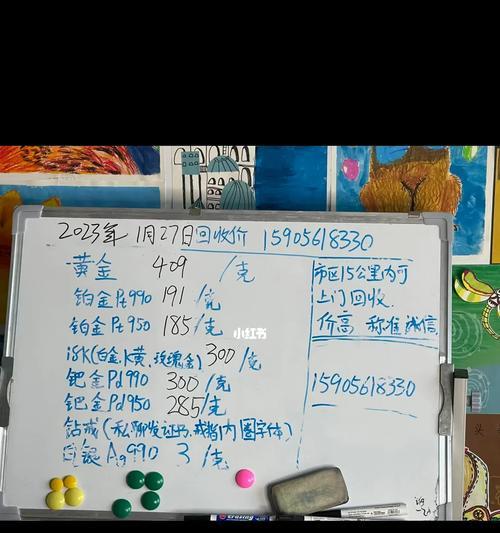 2023年1月27日回收价 15905618330
黄金 409 /克
铂金Pt990 191/克
铂金Pt950 185/克
小红书
18K(白金,K黄,玫瑰金)300/克
钯金Pd990 300/克
钯金Pd950 285/克
钻戒(私聊发证书,戒指内圈字体)
白银Ag990 3/克
市区15公里内可
上门回收.
价高 称准 诚信
15905618330